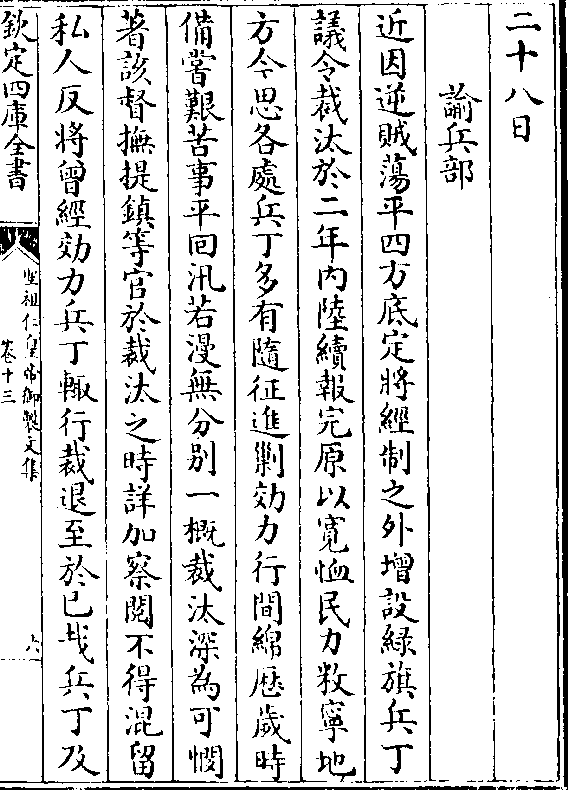 二十八日
諭兵部
近因逆賊蕩平四方底定將經制之外增設綠旗兵丁
議令裁汰於二年內陸續報完原以寬恤民力敉寧地
方今思各處兵丁多有隨征進剿効力行間綿歷歲時
備嘗艱苦事平回汛若漫無分別一概裁汰深為可憫
著該督撫提鎮等官於裁汰之時詳加察閱不得混留
私人反將曾經効力兵丁輙行裁退至於已故兵丁及
欽定四庫全書
聖祖仁皇帝御製文集
卷十三
六